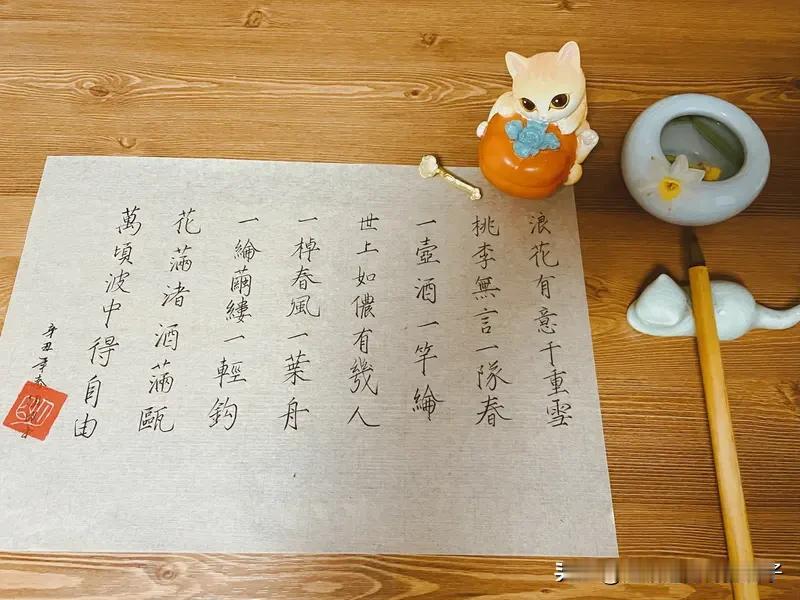 浪花有意千重雪
桃李無言一隊春
一壺酒一竿綸
世上如儂有幾人
一棹春風一葉舟
一綸繭縷一輕鈎
花滿渚酒滿甌
萬頃波中得自由
辛丑季春